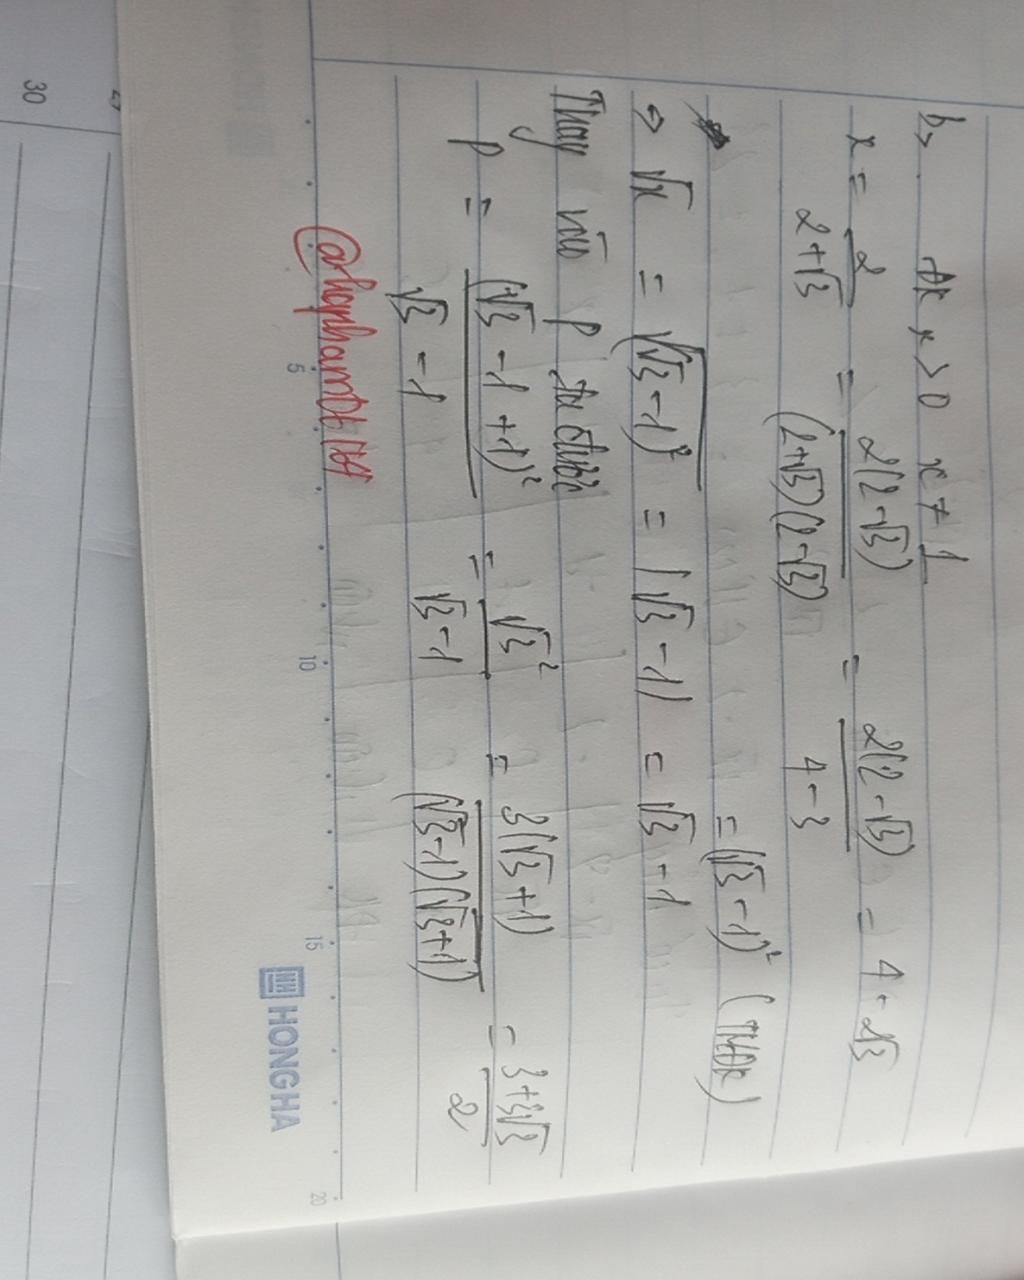 b, ĐK x > 0 x ≠ 1
x = 2/(2+√3) = 2(2-√3)/((2+√3)(2-√3)) = 2(2-√3)/(4-3) = 4-2√3
= (√3-1)² (TMĐK)
⇒ √x = √(√3-1)² = |√3-1| = √3-1
Thay vào P ta được
P = (√3-1+1)²/(√3-1) = √3²/(√3-1) = 3(√3+1)/((√3-1)(√3+1)) = (3+3√3)/2
5 10 15 20
HH HONGHA
30